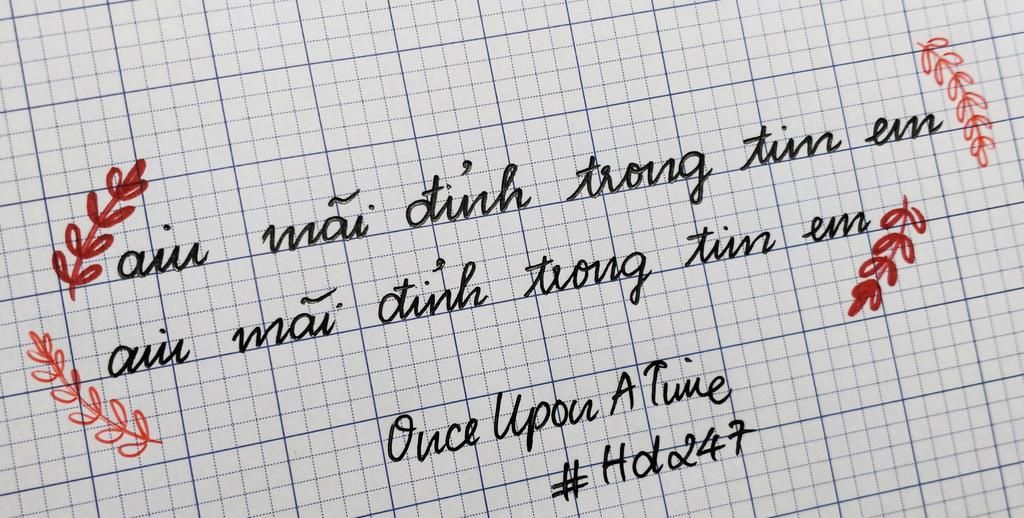 aiu mãi đỉnh trong tim em
aiu mãi đỉnh trong tim em
Once Upon A Time
#Hd247